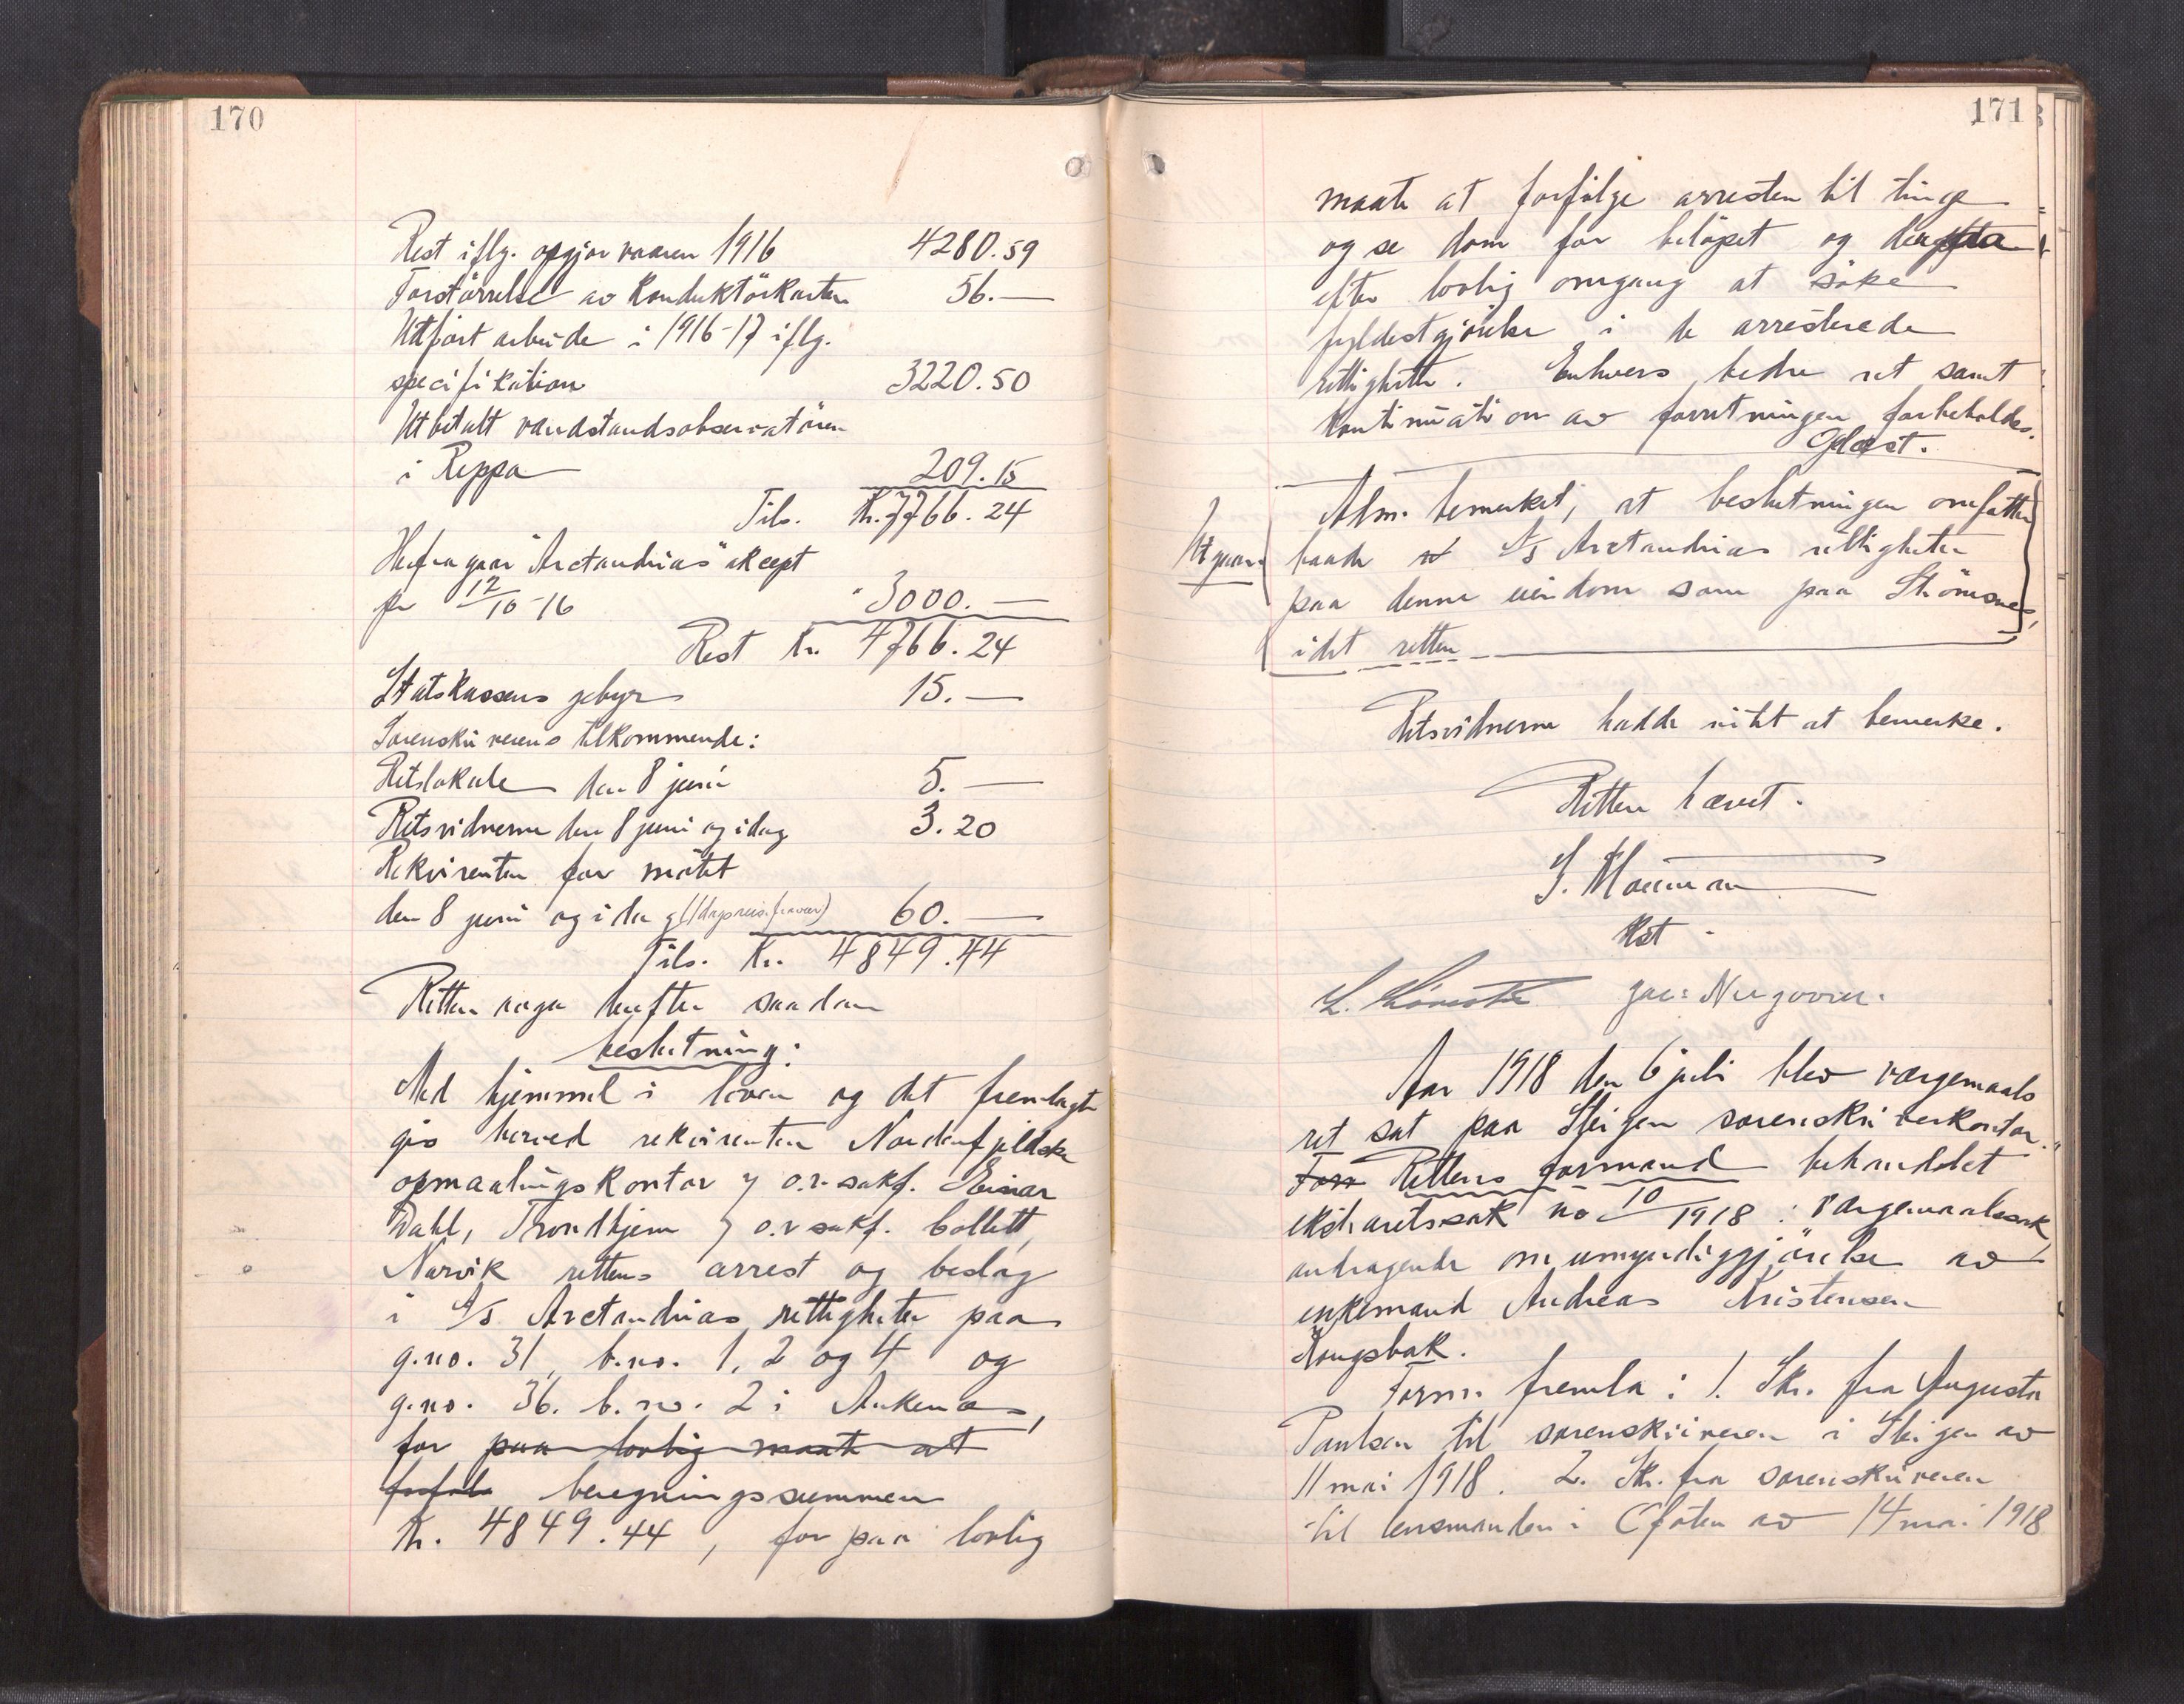 170
Rest iflg. opgjør vaaren 1916 4280.59
Forstörrelse av Konduktörkarten 56.—
Utfört arbeide i 1916-17 iflg.
specifikation 3220.50
Utbetalt vandstandsobservatören
i Reppa 209.15
Tils. Kr. 7766.24
Herfra gaar "Arctandrias" akcept
pr 12/10-16 " 3000.—
Rest Kr. 4766.24
Statskassens gebyr 15.—
Sorenskriverens tilkommende:
Retslokale den 8 juni 5.—
Retsvidnerne den 8 juni og idag 3.20
Rekvirenten for mötet
den 8 juni og idag 60.—
Tils. Kr. 4849.44
Retten avga derefter saadan
beslutning:
Med hjemmel i loven og det fremlagte
gis herved rekvirenten Nordenfjeldske
opmaalingskontor v o.r. sakf. Einar
Dahl, Trondhjem v o.r sakf. Collett,
Narvik rettens arrest og beslag
i A/S Arctandrias rettigheter paa
g.no. 31, b.no. 1, 2 og 4 og
g.no. 36. b.no. 2 i Ankenes,
for paa lovlig maate at
forföl beregningssummen
Kr. 4849.44, for paa lovlig
171
maate at forfölge arresten til tinge
og se dom for belöpet og derpaa
efter lovlig omgang at söke
fyldestgjörelse i de arresterede
rettigheter. Enhvers bedre ret samt
kontinuation av forretningen forbeholdes.
Oplæst.
Adm. bemerket, at beslutningen omfatter
Utgaar. baade A/S Arctandrias rettigheter
paa denne eiendom som paa Strömsnes,
idet retten
Retsvidnerne hadde intet at bemerke.
Retten hævet.
Kst.
Aar 1918 den 6 juli blev vergemaals
ret sat paa Steigen sorenskriverkontor.
Form Rettens formand behandlet
ekstraretssak no 10/1918: Vergemaalssak,
andragende om umyndiggjörelse av
enkemand Andreas Kristensen
Kongsbak.
Form. fremla: 1. Skr. fra Augusta
Paulsen til sorenskriveren i Steigen av
11 mai 1918. 2. Skr. fra sorenskriveren
til lensmanden i Ofoten av 14 mai 1918